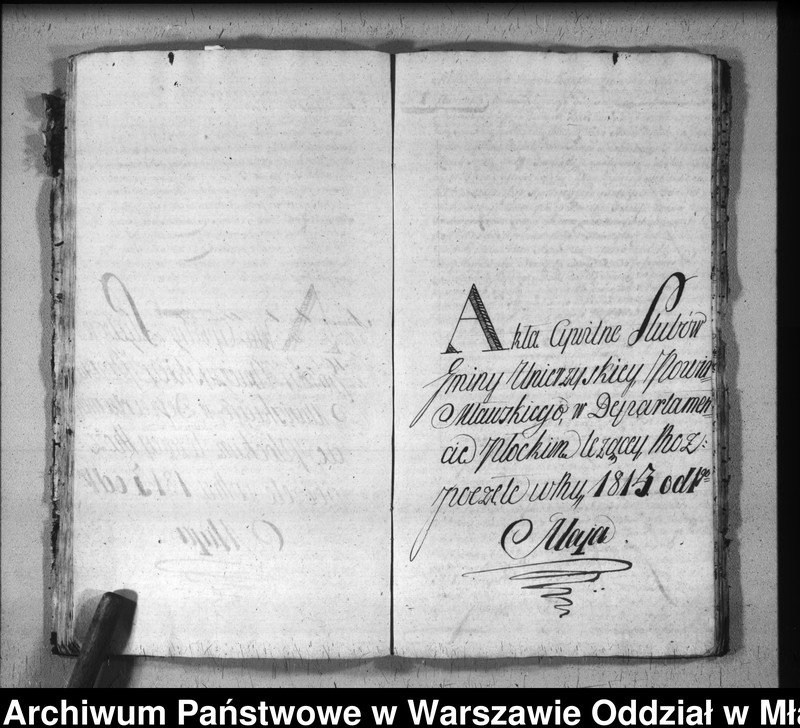 Akta Cywilne Slubów
Gminy Unierzyskiey Powia-
Mlawskiego, w Departamen-
cie Płockim leżącey Roz:
poczęte w Rku 1813 od 1go
Maja.
Archiwum Państwowe w Warszawie Oddział w Mł